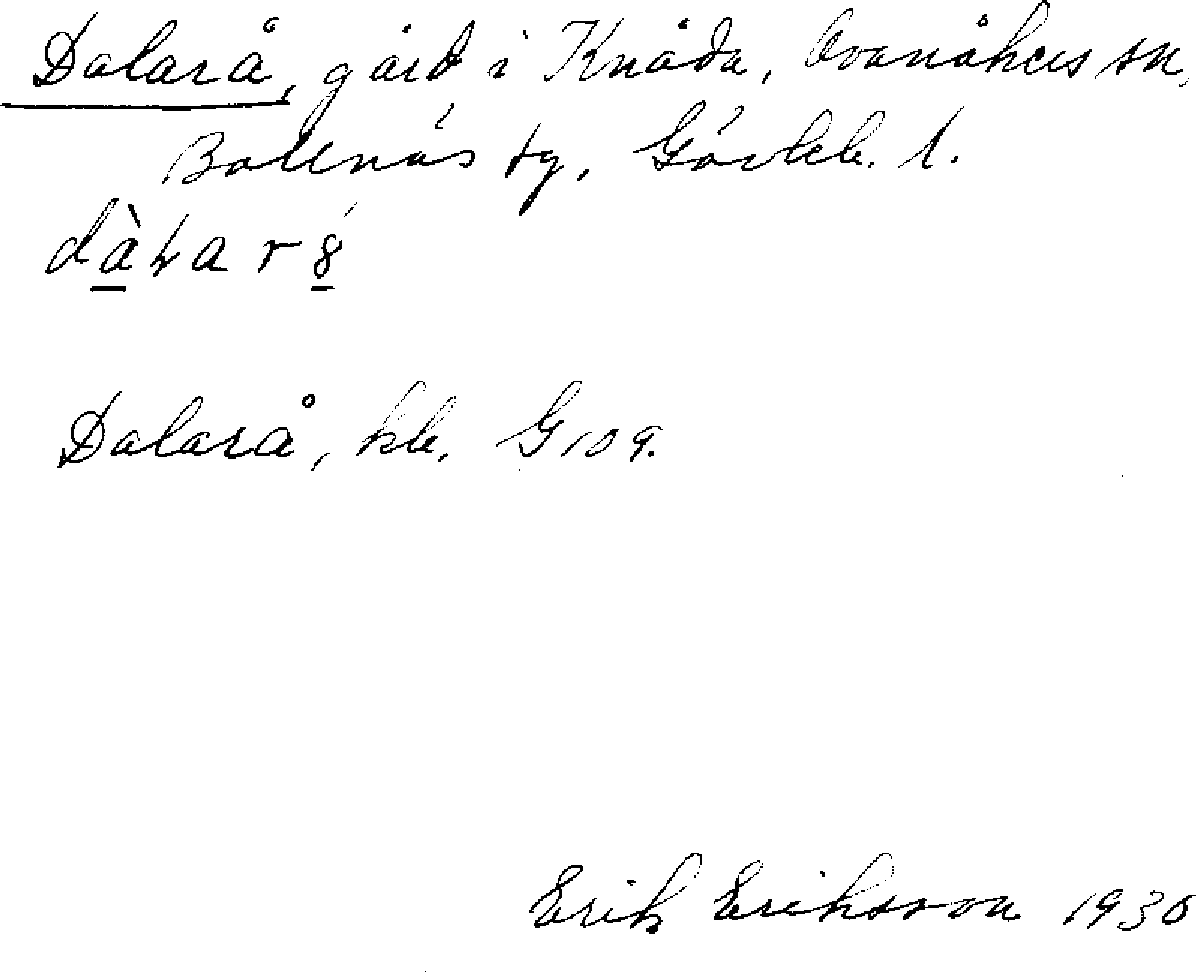 Dalarå, gård i Knåda, Ovanåkers sn,
Bollnäs tg, Gävleb. l.
dàɫaró̲
Dalarå, kb. G 109.
Erik Eriksson 1930